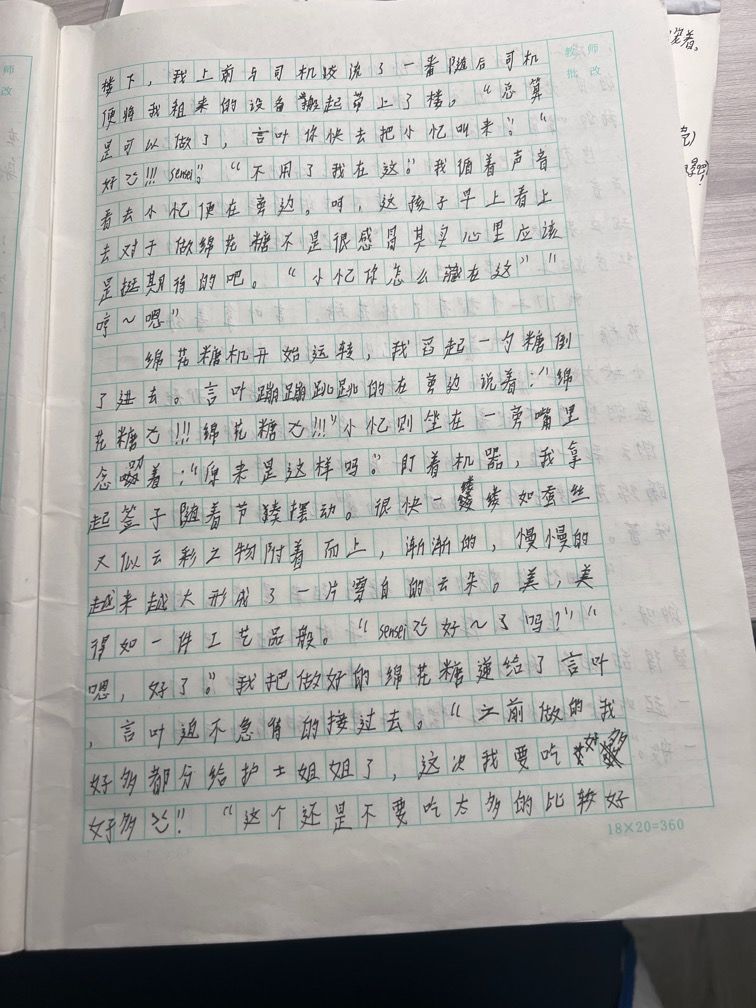 楼下，我上前与司机交流了一番随后司机
便将我租来的设备搬起带上了楼。“总算
是可以做了，言叶你快去把小忆叫来”。“
好~!!!sensei”。“不用了我在这”。我循着声音
看去小忆便在旁边。呵，这孩子早上看上
去对于做绵花糖不是很感冒其实心里应该
是挺期待的吧。“小忆你怎么藏在这”“
哼～嗯”
绵花糖机开始运转，我舀起一勺糖倒
了进去。言叶蹦蹦跳跳的在旁边说着：“绵
花糖~!!!绵花糖~!!!”小忆则坐在一旁嘴里
念叨着：“原来是这样吗”。盯着机器，我拿
起签子随着节揍摆动。很快一缕缕如蚕丝
又似云彩之物附着而上，渐渐的，慢慢的
越来越大形成了一片雪白的云朵。美，美
得如一件工艺品般。“sensei~好～了吗？”“
嗯，好了”。我把做好的绵花糖递给了言叶
，言叶迫不急待的接过去。“之前做的我
好多都分给护士姐姐了，这次我要吃
好多~”！“这个还是不要吃太多的比较好
18×20=360
教师
批改
师
改